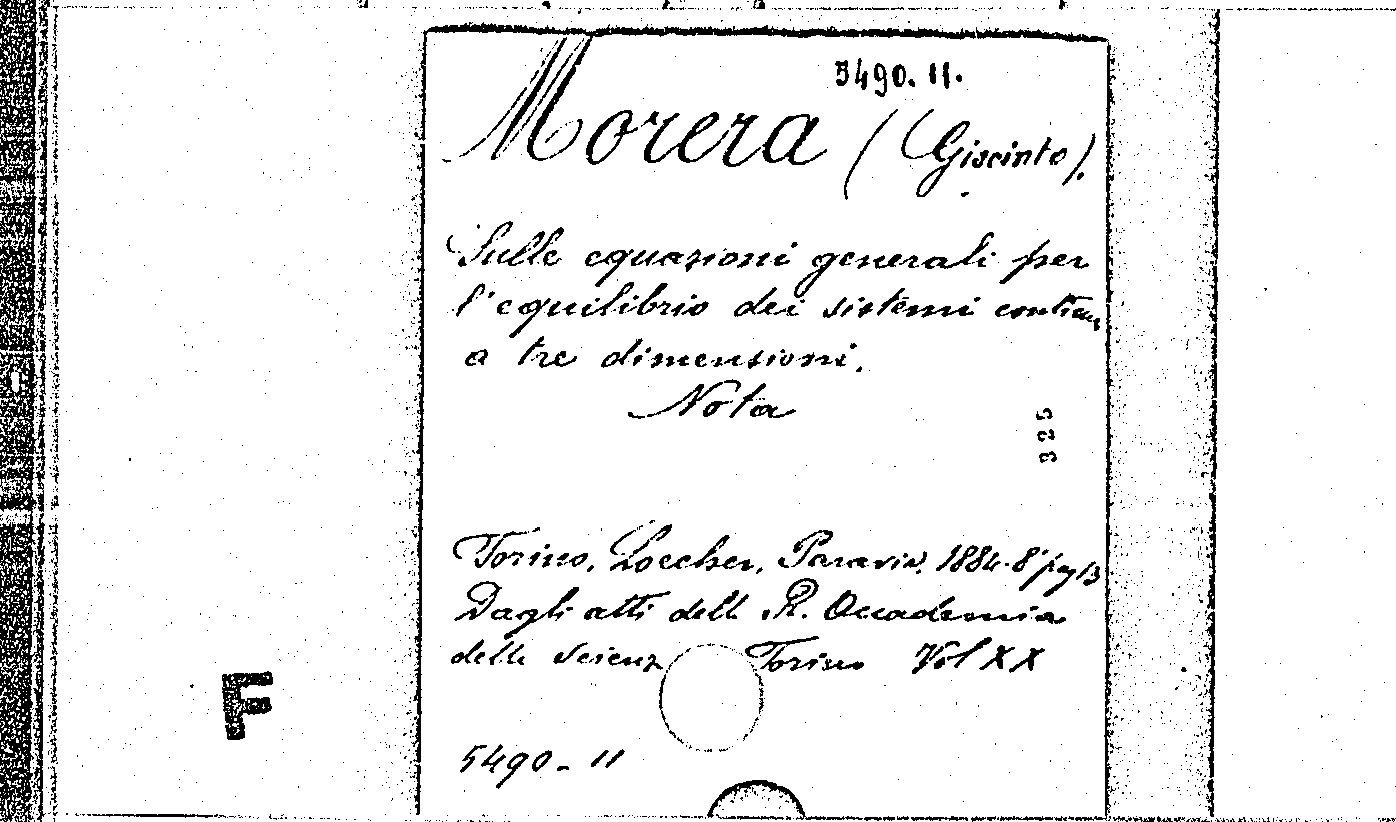 5490. 11.
Morera (Giacinto).
Sulle equazioni generali per
l'equilibrio dei sistemi continu
a tre dimensioni.
Nota
325
Torino, Loescher, Paravia, 1884-8° pag 13
Dagli atti della R. Accademia
delle Scienz Torino Vol XX
F
5490-11